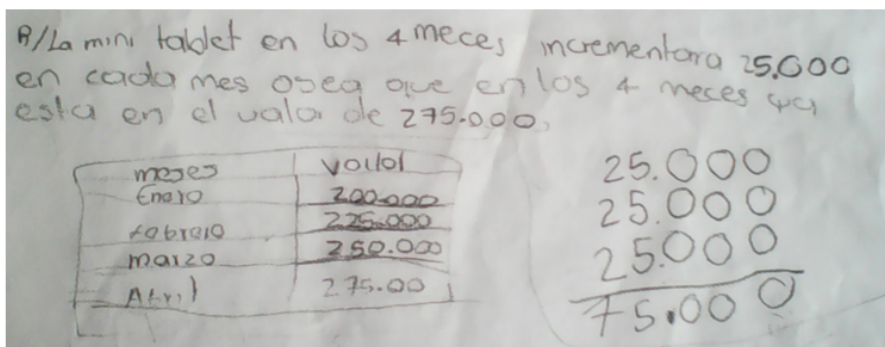 R/La mini tablet en los 4 meces incrementara 25.000
en cada mes osea que en los 4 meces ya
esta en el valor de 275.000,
meses valor
Enero 200.000
febrero 225.000
marzo 250.000
Abril 275.00
25.000
25.000
25.000
75.000